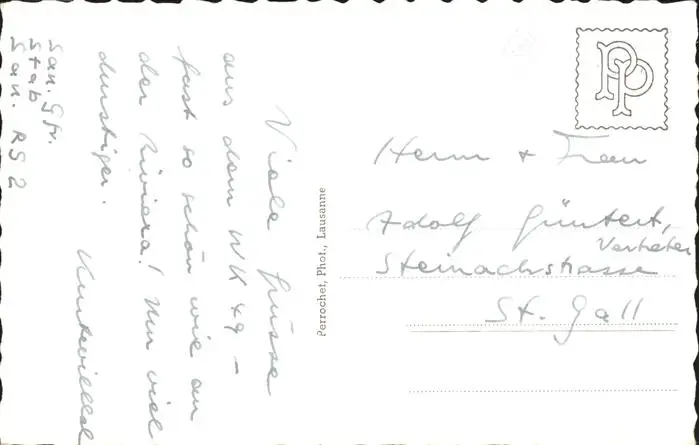 Viele Grüsse
aus dem WK 49 –
fast so schön wie an
der Riviera! Nur viel
durstiger.
San. Gfr.
Stab
San. RS 2
Perrochet, Phot., Lausanne
PP
Herrn + Frau
Adolf Güntert,
Vertreter
Steinachstrasse
St. Gall